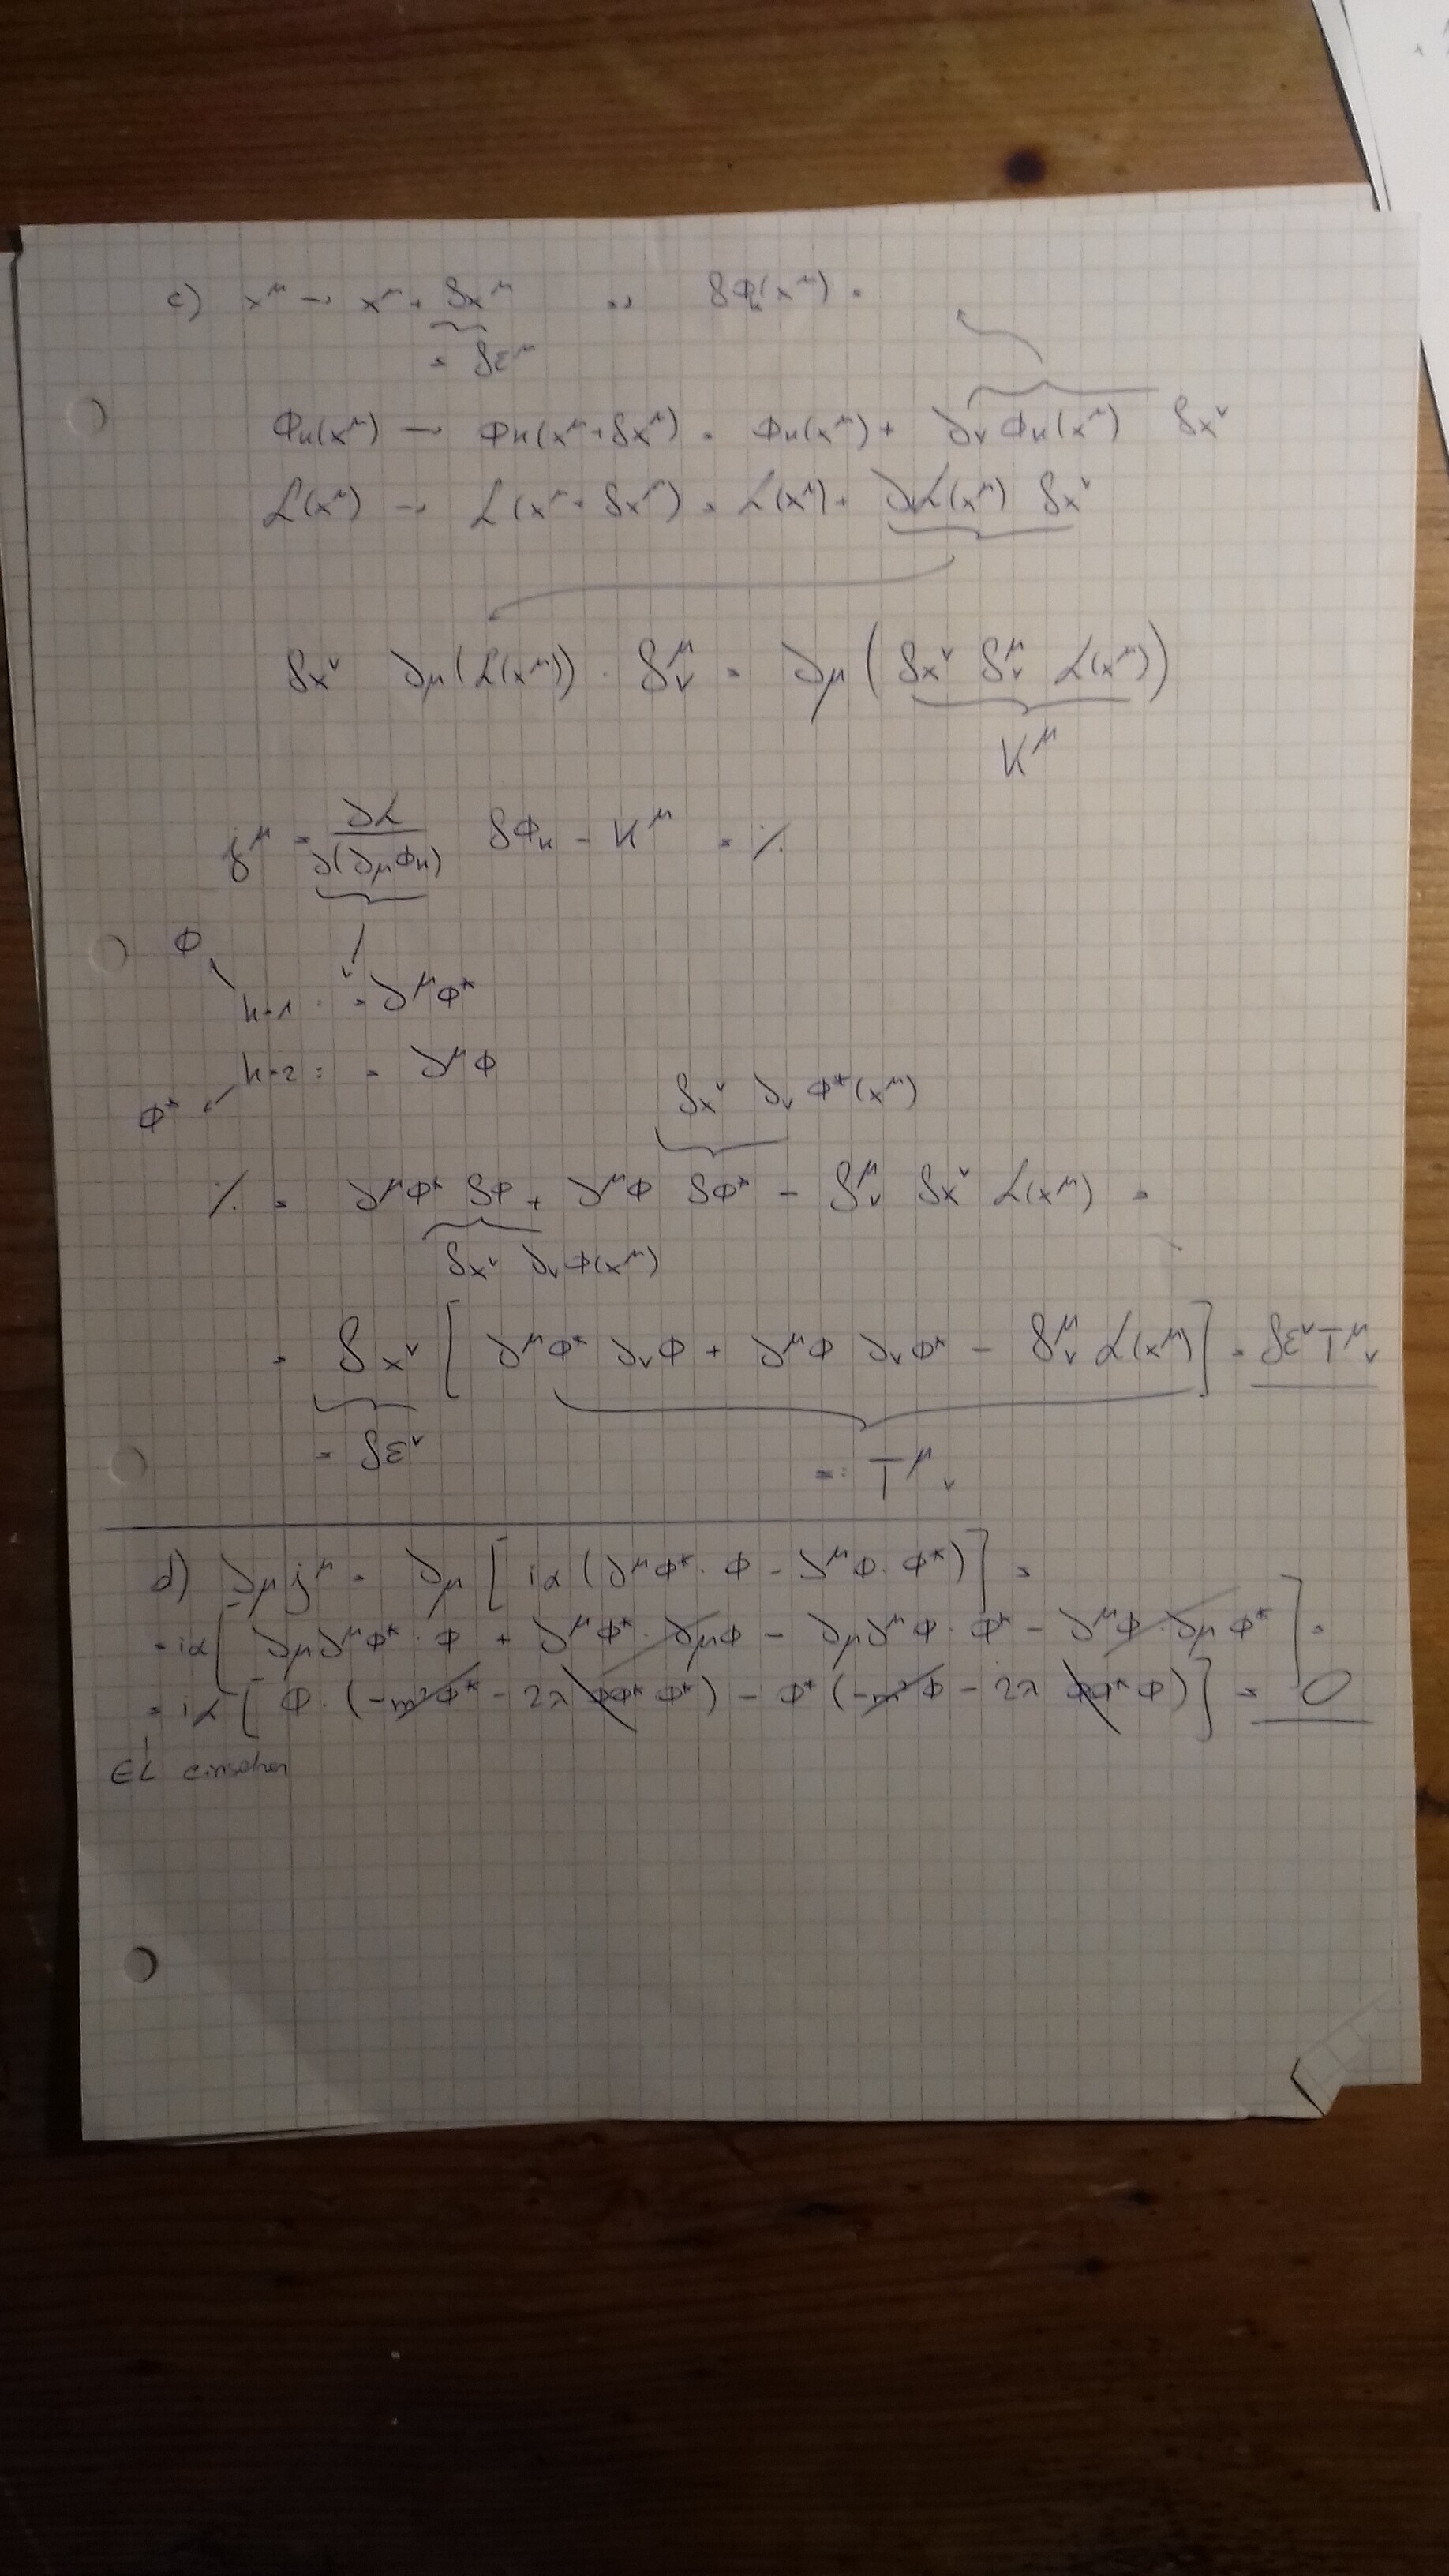 c) x^μ → x^μ + δx^μ .. δΦ_k(x^μ) =
= δε^μ
Φ_k(x^μ) → Φ_k(x^μ + δx^μ) = Φ_k(x^μ) + ∂_ν Φ_k(x^μ) δx^ν
ℒ(x^μ) → ℒ(x^μ + δx^μ) = ℒ(x^μ) + ∂_νℒ(x^μ) δx^ν
δx^ν ∂_μ(ℒ(x^μ)) · δ^μ_ν = ∂_μ(δx^ν δ^μ_ν ℒ(x^μ))
K^μ
j^μ = ∂ℒ/∂(∂_μΦ_k) δΦ_k - K^μ = ·/·
Φ
k=1 : = ∂^μΦ*
k=2 : = ∂^μΦ
Φ*
δx^ν ∂_ν Φ*(x^μ)
·/· = ∂^μΦ* δΦ + ∂^μΦ δΦ* - δ^μ_ν δx^ν ℒ(x^μ) =
δx^ν ∂_νΦ(x^μ)
= δx^ν [ ∂^μΦ* ∂_νΦ + ∂^μΦ ∂_νΦ* - δ^μ_ν ℒ(x^μ) ] = δε^ν T^μ_ν
= δε^ν
=: T^μ_ν
d) ∂_μ j^μ = ∂_μ [ iα (∂^μΦ* · Φ - ∂^μΦ · Φ*) ] =
= iα [ ∂_μ∂^μΦ* · Φ + ∂^μΦ* · ∂_μΦ - ∂_μ∂^μΦ · Φ* - ∂^μΦ · ∂_μΦ* ] =
= iα [ Φ · (-m²Φ* - 2λ ΦΦ* Φ*) - Φ* (-m²Φ - 2λ ΦΦ* Φ) ] = 0
EL einsetzen